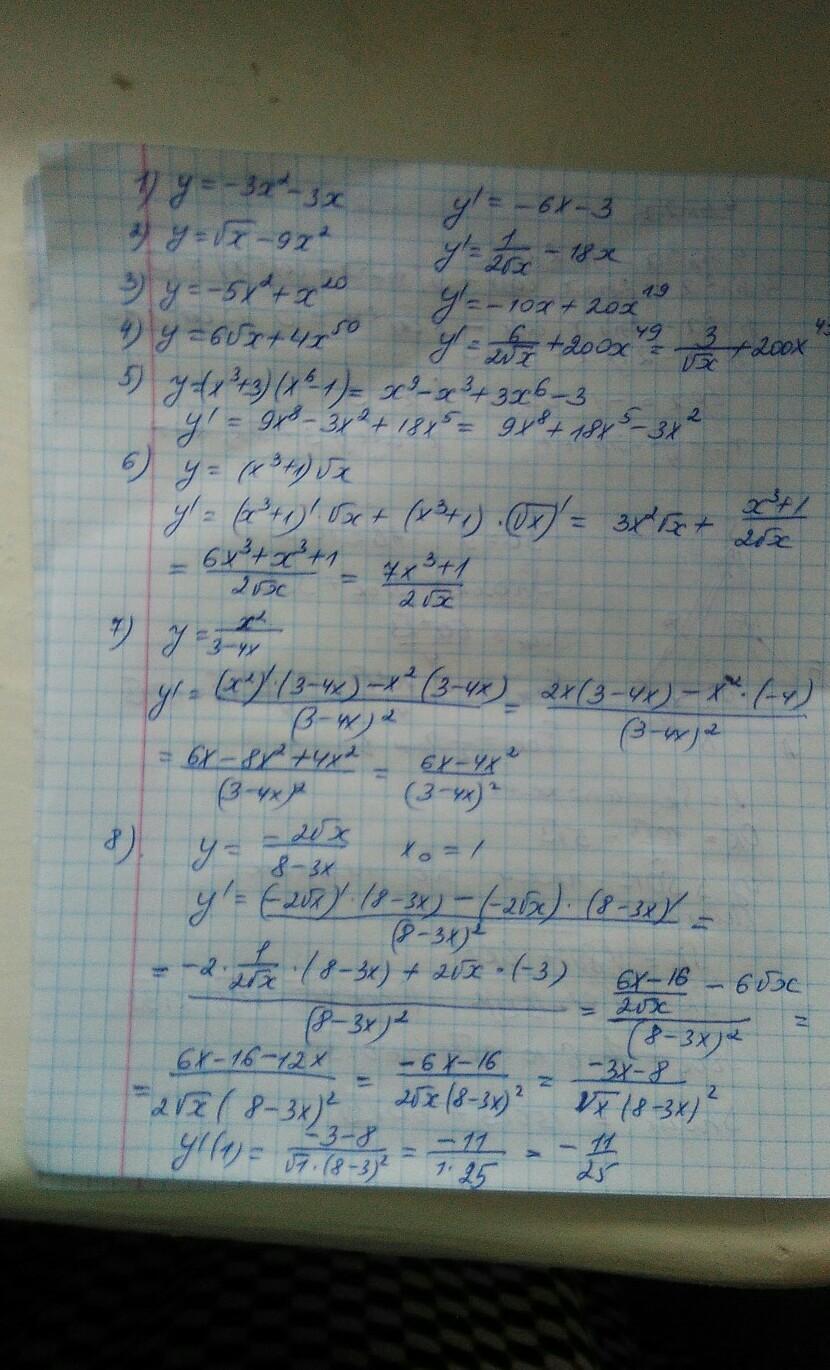 1) y = -3x² - 3x  y' = -6x - 3
2) y = √x - 9x²  y' = 1/(2√x) - 18x
3) y = -5x² + x²⁰  y' = -10x + 20x¹⁹
4) y = 6√x + 4x⁵⁰  y' = 6/(2√x) + 200x⁴⁹ = 3/√x + 200x⁴
5) y = (x³+3)(x⁶-1) = x⁹ - x³ + 3x⁶ - 3
y' = 9x⁸ - 3x² + 18x⁵ = 9x⁸ + 18x⁵ - 3x²
6) y = (x³+1)√x
y' = (x³+1)'·√x + (x³+1)·(√x)' = 3x²√x + (x³+1)/(2√x)
= (6x³+x³+1)/(2√x) = (7x³+1)/(2√x)
7) y = x²/(3-4x)
y' = ((x²)'·(3-4x) - x²(3-4x))/(3-4x)² = (2x(3-4x) - x²·(-4))/(3-4x)²
= (6x - 8x² + 4x²)/(3-4x)² = (6x - 4x²)/(3-4x)²
8). y = (-2√x)/(8-3x)  x₀ = 1
y' = ((-2√x)'·(8-3x) - (-2√x)·(8-3x)')/(8-3x)² =
= (-2·1/(2√x)·(8-3x) + 2√x·(-3))/(8-3x)² = ((6x-16)/(2√x) - 6√x)/(8-3x)² =
= (6x-16-12x)/(2√x(8-3x)²) = (-6x-16)/(2√x(8-3x)²) = (-3x-8)/(√x(8-3x)²)
y'(1) = (-3-8)/(√1·(8-3)²) = (-11)/(1·25) = -11/25